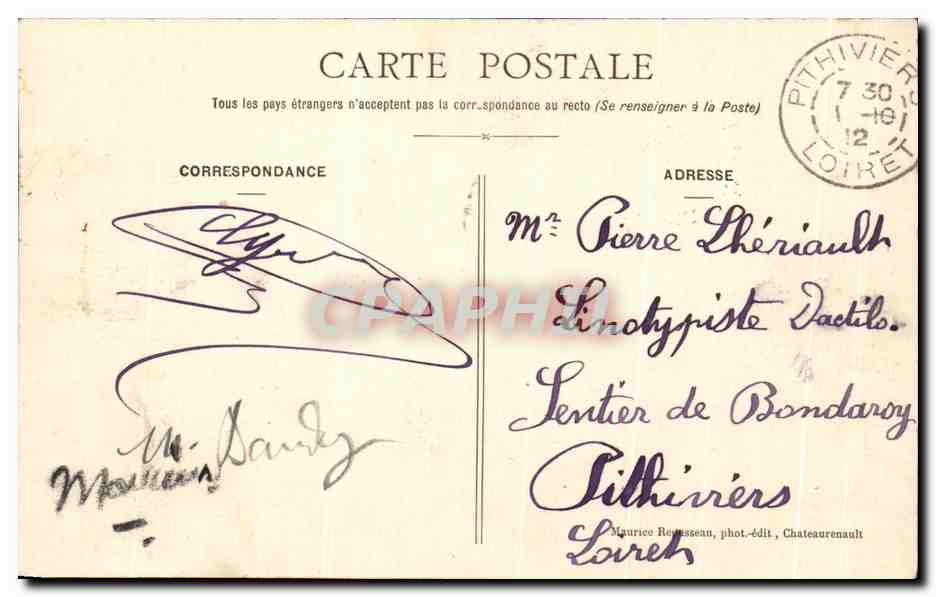 CARTE POSTALE
Tous les pays étrangers n'acceptent pas la correspondance au recto (Se renseigner à la Poste)
PITHIVIERS
7 30
1 -10
12
LOIRET
CORRESPONDANCE
ADRESSE
Mr Pierre Lhériault
Linotypiste Dactilo.
Sentier de Bondaroy
Pithiviers
Loiret
M.
Maurice Rousseau, phot.-édit , Chateaurenault
CPAPHIL